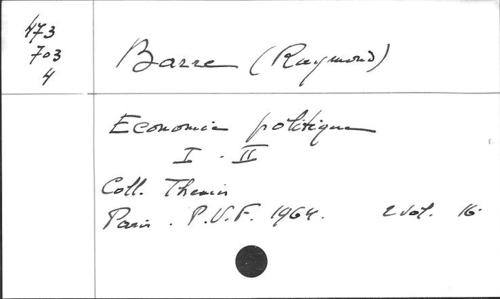 473
703
4
Barre (Raymond)
Economie politique
I - II
Coll. Themis
Paris. P.U.F. 1964. 2 vol. 16.